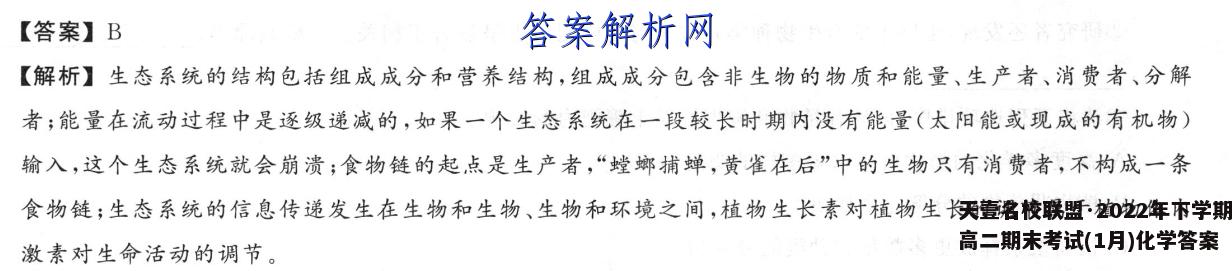 【答案】B
答案解析网
【解析】生态系统的结构包括组成成分和营养结构,组成成分包含非生物的物质和能量、生产者、消费者、分解
者;能量在流动过程中是逐级递减的,如果一个生态系统在一段较长时期内没有能量(太阳能或现成的有机物)
输入,这个生态系统就会崩溃;食物链的起点是生产者,“螳螂捕蝉,黄雀在后”中的生物只有消费者,不构成一条
食物链;生态系统的信息传递发生在生物和生物、生物和环境之间,植物生长素对植物生长
激素对生命活动的调节。
天壹名校联盟·2022年下学期
高二期末考试(1月)化学答案